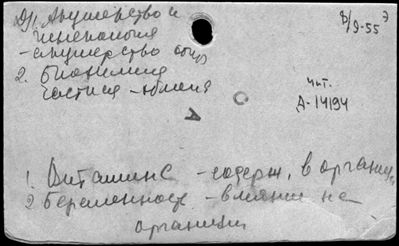 Др. Акушерство и
гинекология
- акушерство
2. Биохимия
частная -
Б/9-55 э
чит.
Д-14194
А
1. Витамин С - содерж. в организ.
2 Беременность - влияние на
организм